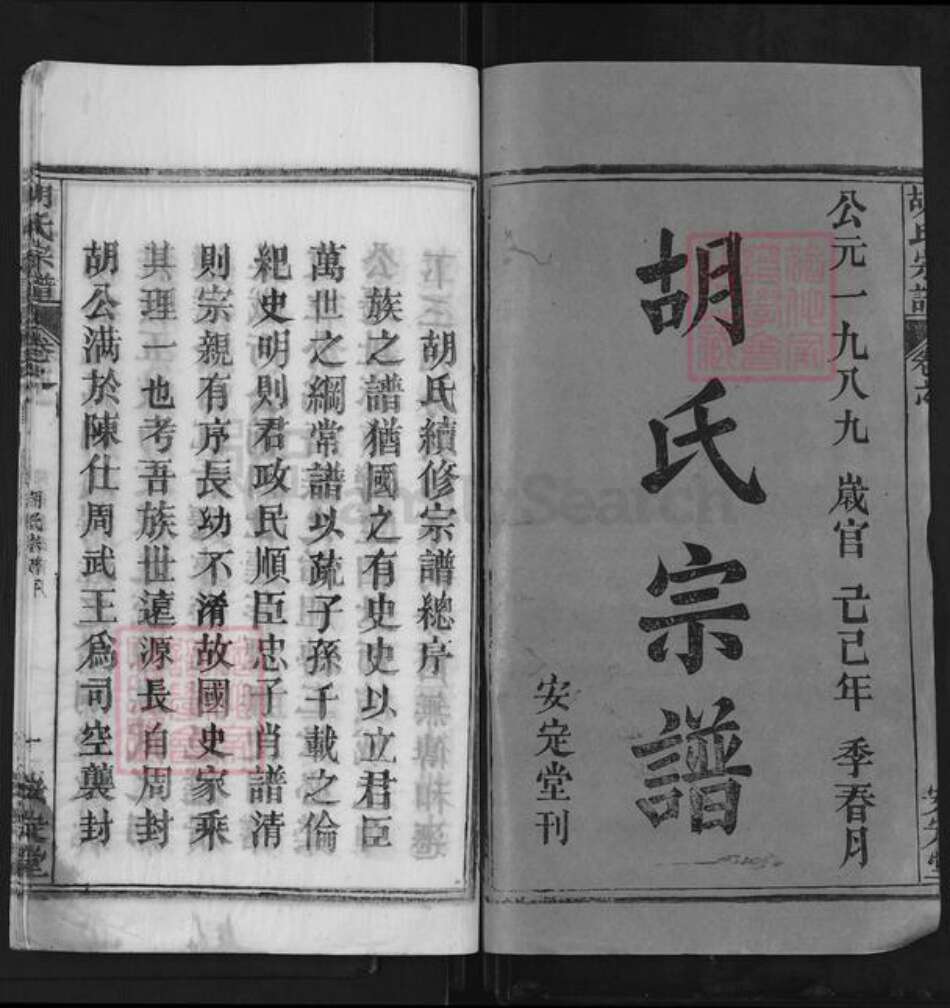 公元一九八九 歲官 己巳年 季春月
胡氏宗譜
安定堂刊
胡氏續修宗譜總序
族之譜猶國之有史史以立君臣
萬世之綱常譜以疏子孫千載之倫
紀史明則君政民順臣忠子肖譜清
則宗親有序長幼不淆故國史家乘
其理一也考吾族世遠源長自周封
胡公满於陳仕周武王為司空襲封
胡氏宗譜